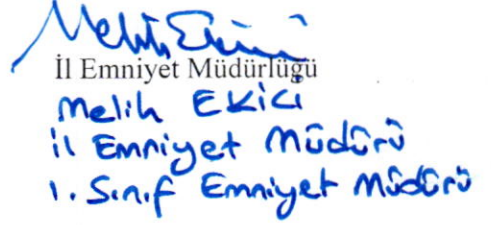 Melih Ekici
İl Emniyet Müdürlüğü
Melih EKİCİ
il Emniyet Müdürü
1. Sınıf Emniyet Müdürü